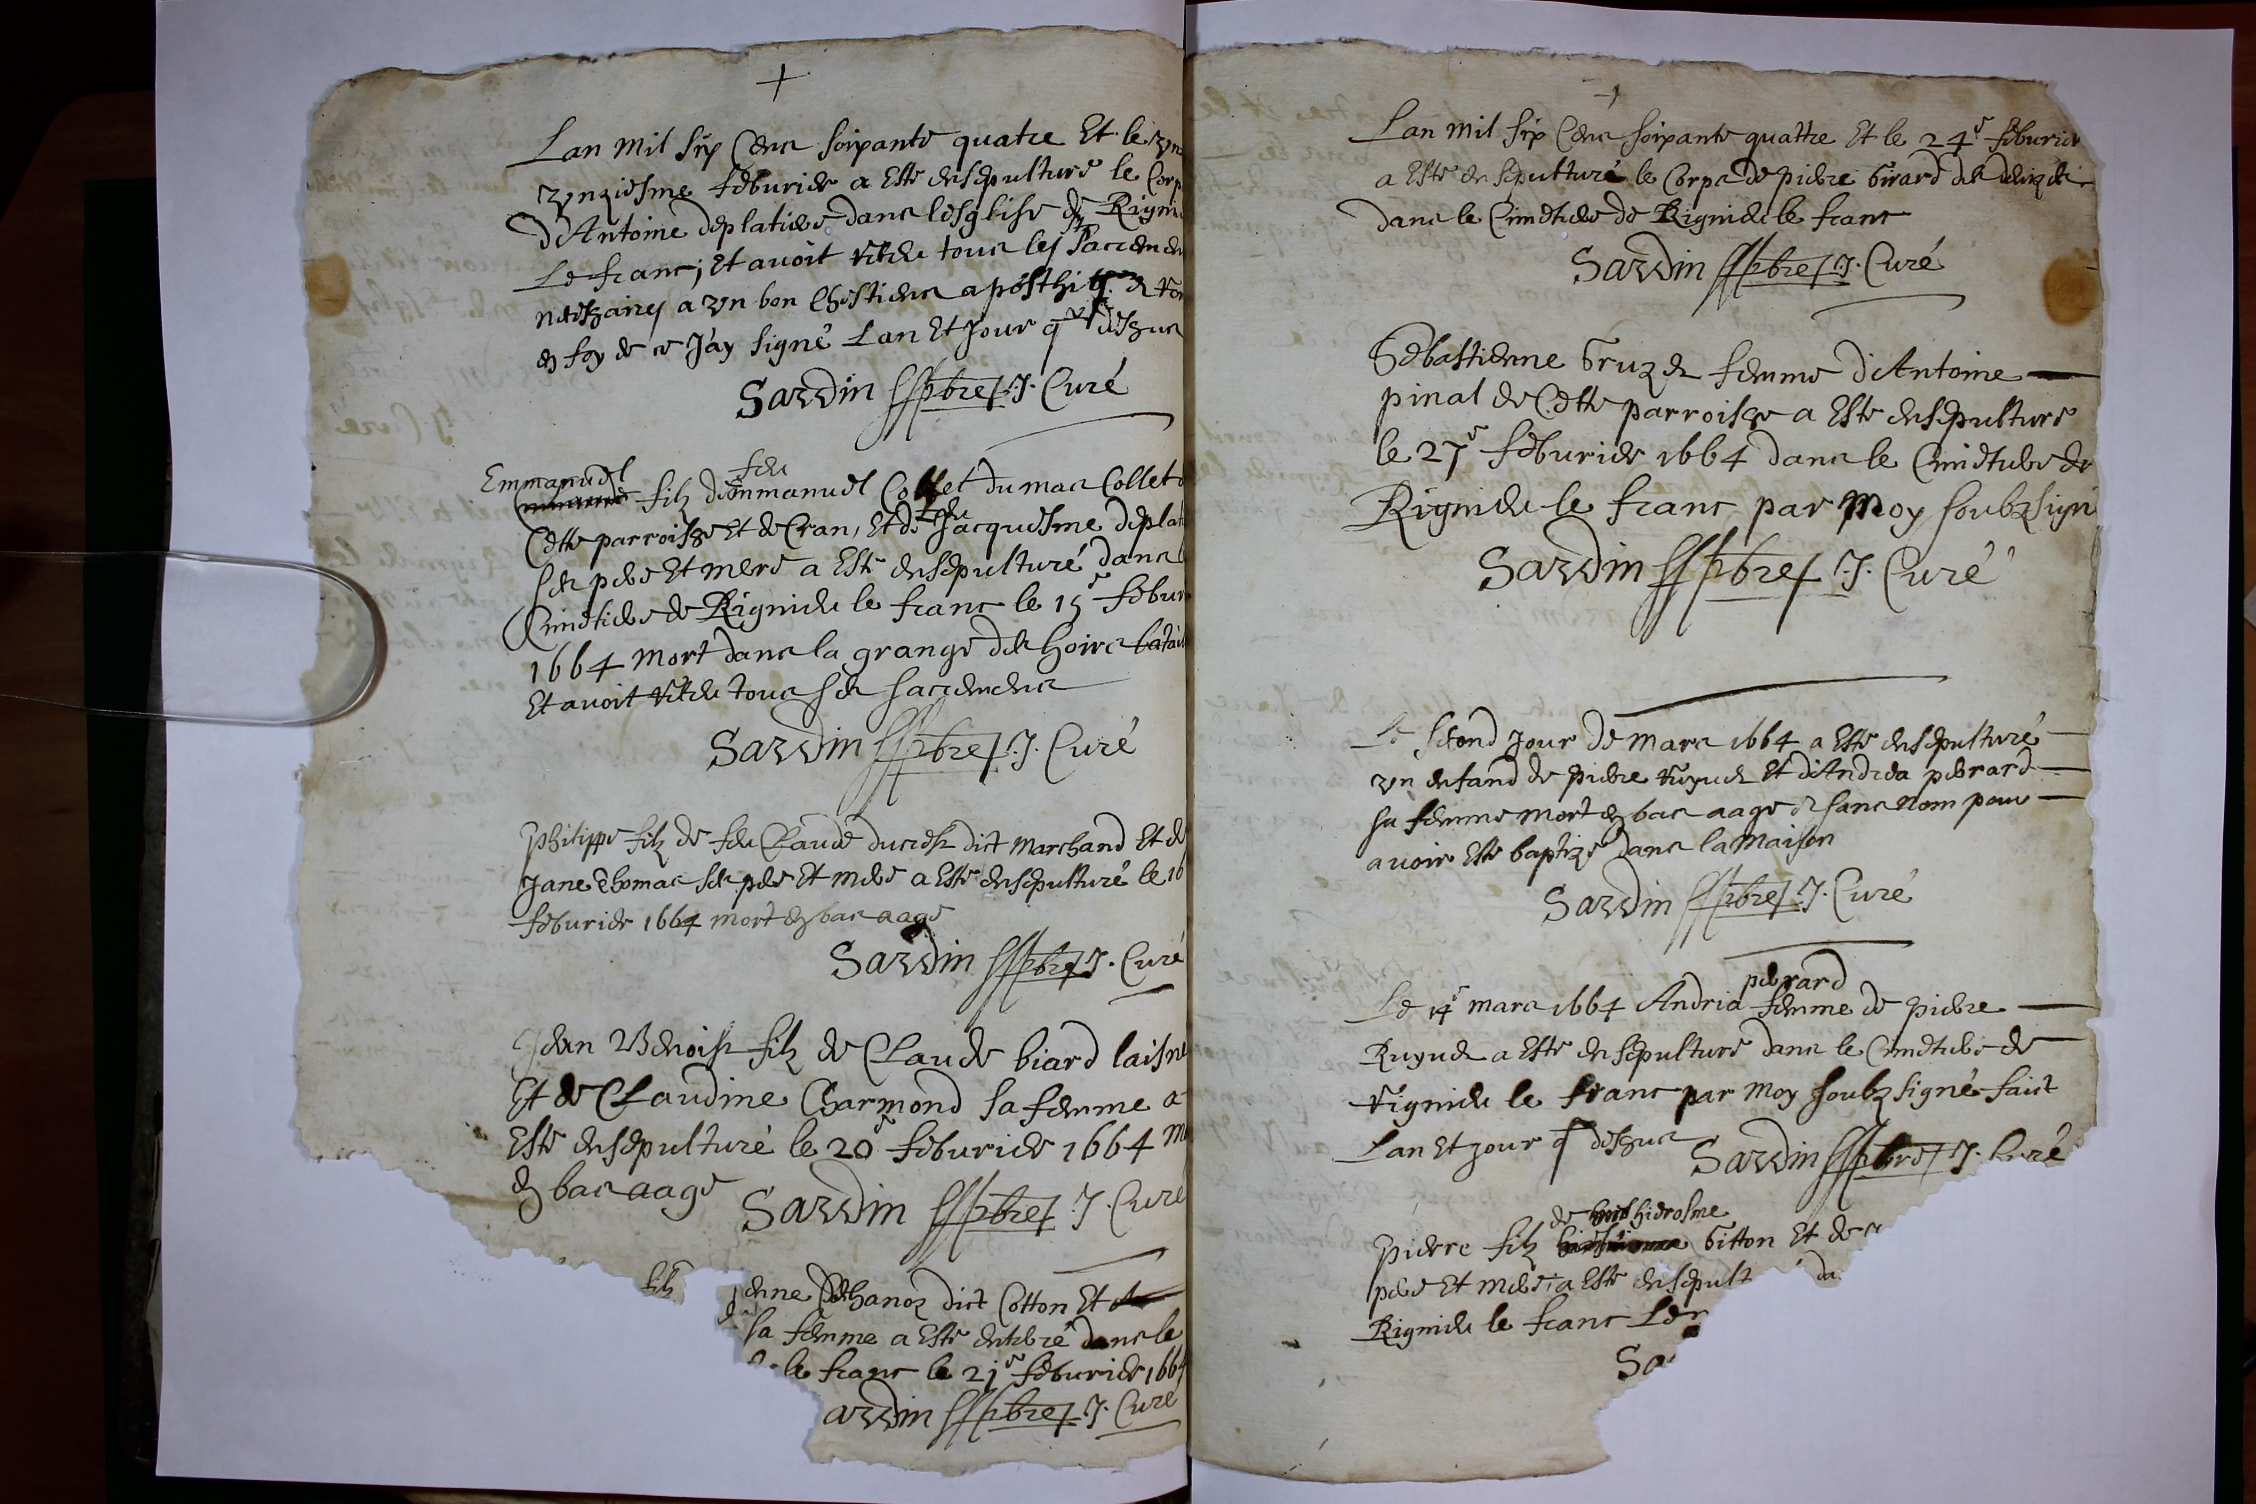 Lan mil six Cens soixante quatre Et le
vnziesme feburier a Esté ensepulturé le Corp
d'Antoine deplatiere dans lesglise de Rigni
Le franc; Et avoit receu tous les Sacremen
necessaires a vn bon Chrestiens
en foy de ce J'ay signé Lan Et Jour q dessus
Sardin pbre J. Curé
Emmanuel feu
filz d'emmanuel Collet du mas Collet
Cette parroisse Et de Cran, Et de Jacquesme deplat
ses pere Et mere a Esté ensepulturé dans
Cimetiere de Rignieu le franc le 15e febur
1664 Mort dans la grange des hoirs
Et avoit receu tous ses sacremens
Sardin pbre J. Curé
Philippe filz de feu Claude ducrest dict Marchand Et de
Jane Thomas ses pere Et mere a Esté ensepulturé le 16
feburier 1664 mort en bas aage
Sardin pbre J. Curé
Jean Benoist filz de Claude biard laisné
Et de Claudine Charmond sa femme a
Esté ensepulturé le 20e feburier 1664 M
en bas aage Sardin pbre J. Curé
filz enne dict Cotton Et
sa femme a Esté enterré dans le
le franc le 21e feburier 1664
ardin pbre J. Curé
Lan mil six Cens soixante quattre Et le 24e feburier
a Esté ensepulturé le Corps de pierre Girard
dans le Cimetiere de Rignieu le franc
Sardin pbre J. Curé
Sebastienne femme d'Antoine
pinal de Cette parroisse a Esté ensepulturé
le 27e feburier 1664 dans le Cimetiere de
Rignieu le franc par Moy soubzsign
Sardin pbre J. Curé
Le second Jour de Mars 1664 a Esté ensepulturé
vn enfand de pierre ruyuet Et d'Andrea perrard
sa femme mort en bas aage et sans nom pour
avoir Esté baptizé dans la Maison
Sardin pbre J. Curé
perrard
Le 14e mars 1664 Andria femme de pierre
Ruyuet a Esté ensepulturé dans le Cimetiere de
rignieu le franc par Moy soubz signé faict
Lan Et Jour q dessus Sardin pbre J. Curé
de hierosme
Pierre filz Gitton Et de
pere Et mere, a Esté ensepult da
Rignieu le franc Le
Sa